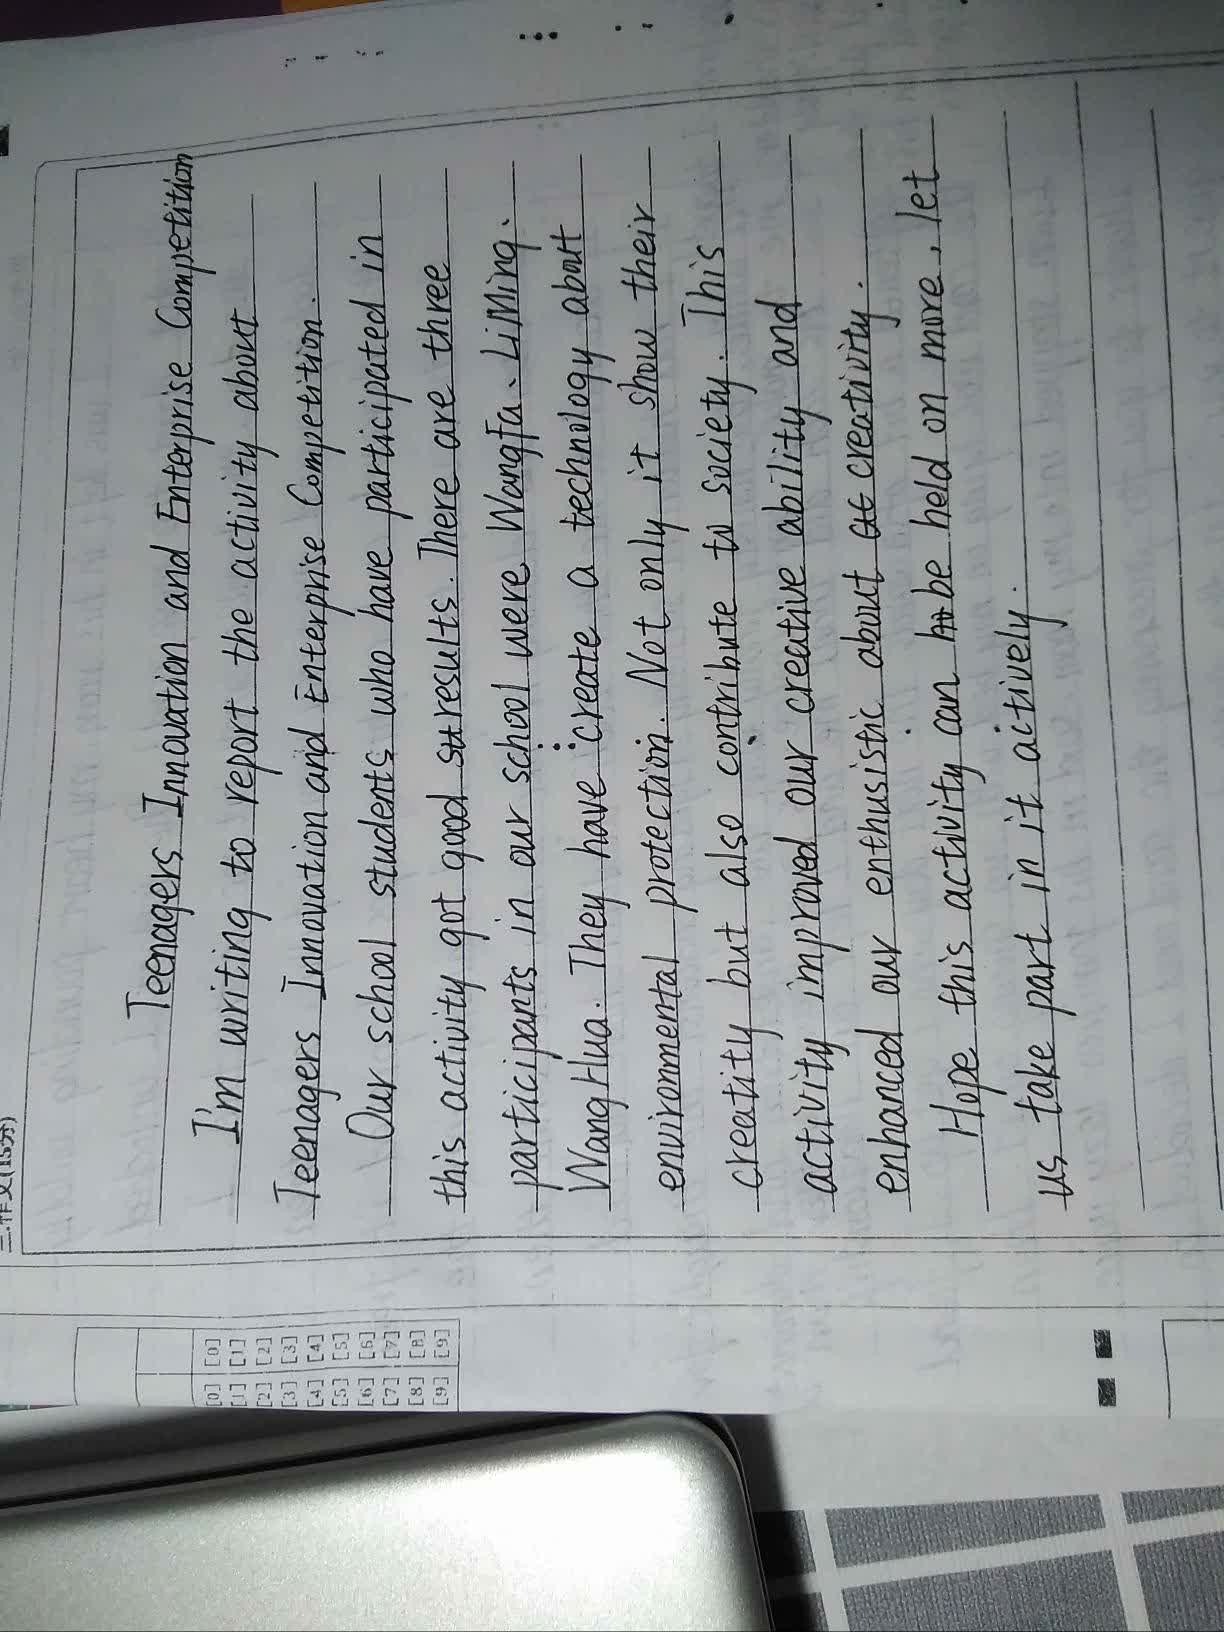 二.作文(15分)
Teenagers Innovation and Enterprise Competition
I'm writing to report the activity about
Teenagers Innovation and Enterprise Competition.
Our school students who have participated in
this activity got good results. There are three
participants in our school were WangFa、LiMing、
WangHua. They have create a technology about
environmental protection. Not only it show their
creatity but also contribute to society. This
activity improved our creative ability and
enhanced our enthusistic about creativity.
Hope this activity can be held on more, let
us take part in it actively.
[0] [0]
[1] [1]
[2] [2]
[3] [3]
[4] [4]
[5] [5]
[6] [6]
[7] [7]
[8] [8]
[9] [9]